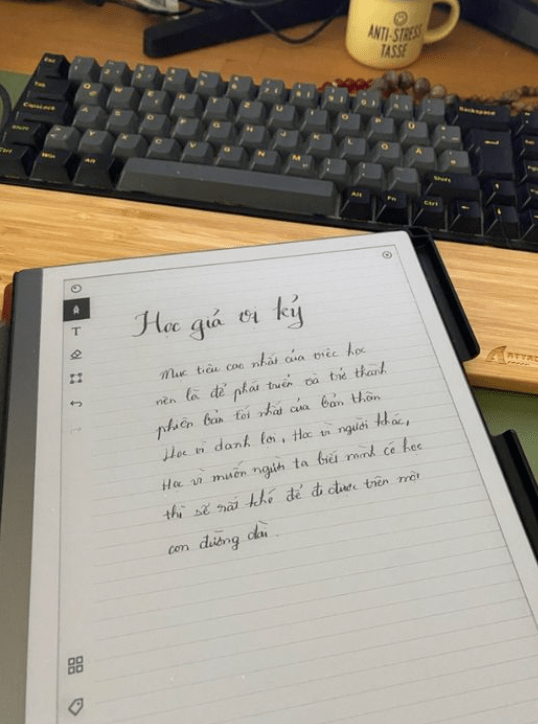 ANTI-STRESS
TASSE
Esc
Tab
CapsLock
Shift
Ctrl
Win
Alt
Backspace
Shift
Alt
Fn
Ctrl
Q
W
E
R
T
Z
U
A
S
D
F
G
H
J
K
L
Y
X
C
V
B
N
M
ATTAC
T
Học giả vị kỷ
Mục tiêu cao nhất của việc học
nên là để phát triển và trở thành
phiên bản tốt nhất của bản thân
Học vì danh lợi, Học vì người khác,
Học vì muốn người ta biết mình có học
thì sẽ rất khó để đi được trên một
con đường dài.